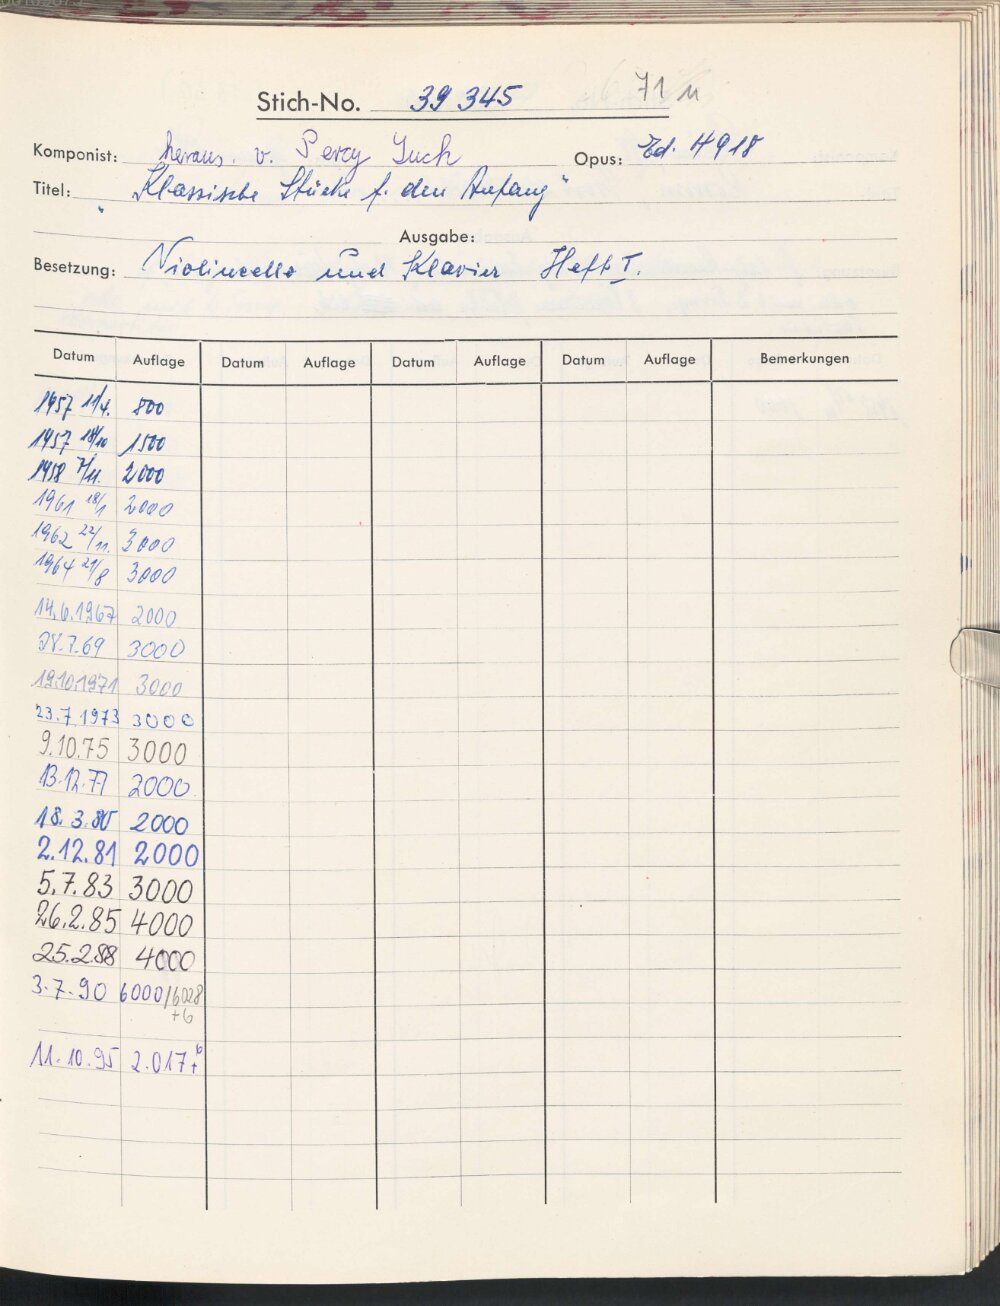 Stich-No. 39 345 71
Komponist: heraus. v. Percy Such Opus: Ed. 4918
Titel: "Klassische Stücke f. den Anfang"
Ausgabe:
Besetzung: Violincello und Klavier Heft I.
Datum Auflage Datum Auflage Datum Auflage Datum Auflage Bemerkungen
1957 11/4. 800
1957 18/10 1500
1958 7/11. 2000
1961 18/1 2000
1962 22/11. 3000
1964 21/8 3000
14.6.1967 2000
28.7.69 3000
19.10.1971 3000
23.7.1973 3000
9.10.75 3000
13.12.77 2000
18.3.80 2000
2.12.81 2000
5.7.83 3000
26.2.85 4000
25.2.88 4000
3.7.90 6000/6028
+6
11.10.95 2.017+6